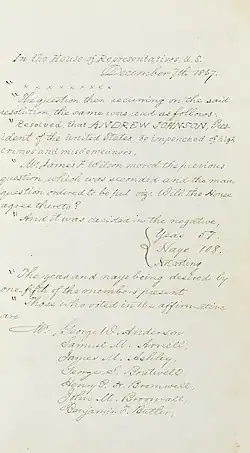 In the House of Representatives, U.S.
December 7th 1867.
" x x x x x x x x x
"The question then recurring on the said
resolution, the same was read as follows:
"Resolved, that ANDREW JOHNSON, Pres-
ident of the United States, be impeached of high
crimes and misdemeanors.
"Mr. James F. Wilson moved the previous
question which was seconded and the main
question ordered to be put viz: Will the House
agree thereto?
"And it was decided in the negative,
Yeas 57
Nays 108
Not voting
"The yeas and nays being desired by
one fifth of the members present
"Those who voted in the affirmative
are
Mr. George W. Anderson
Samuel M. Arnell,
James M. Ashley,
George S. Boutwell
Henry P. H. Bromwell,
John M. Broomall,
Benjamin F. Butler,